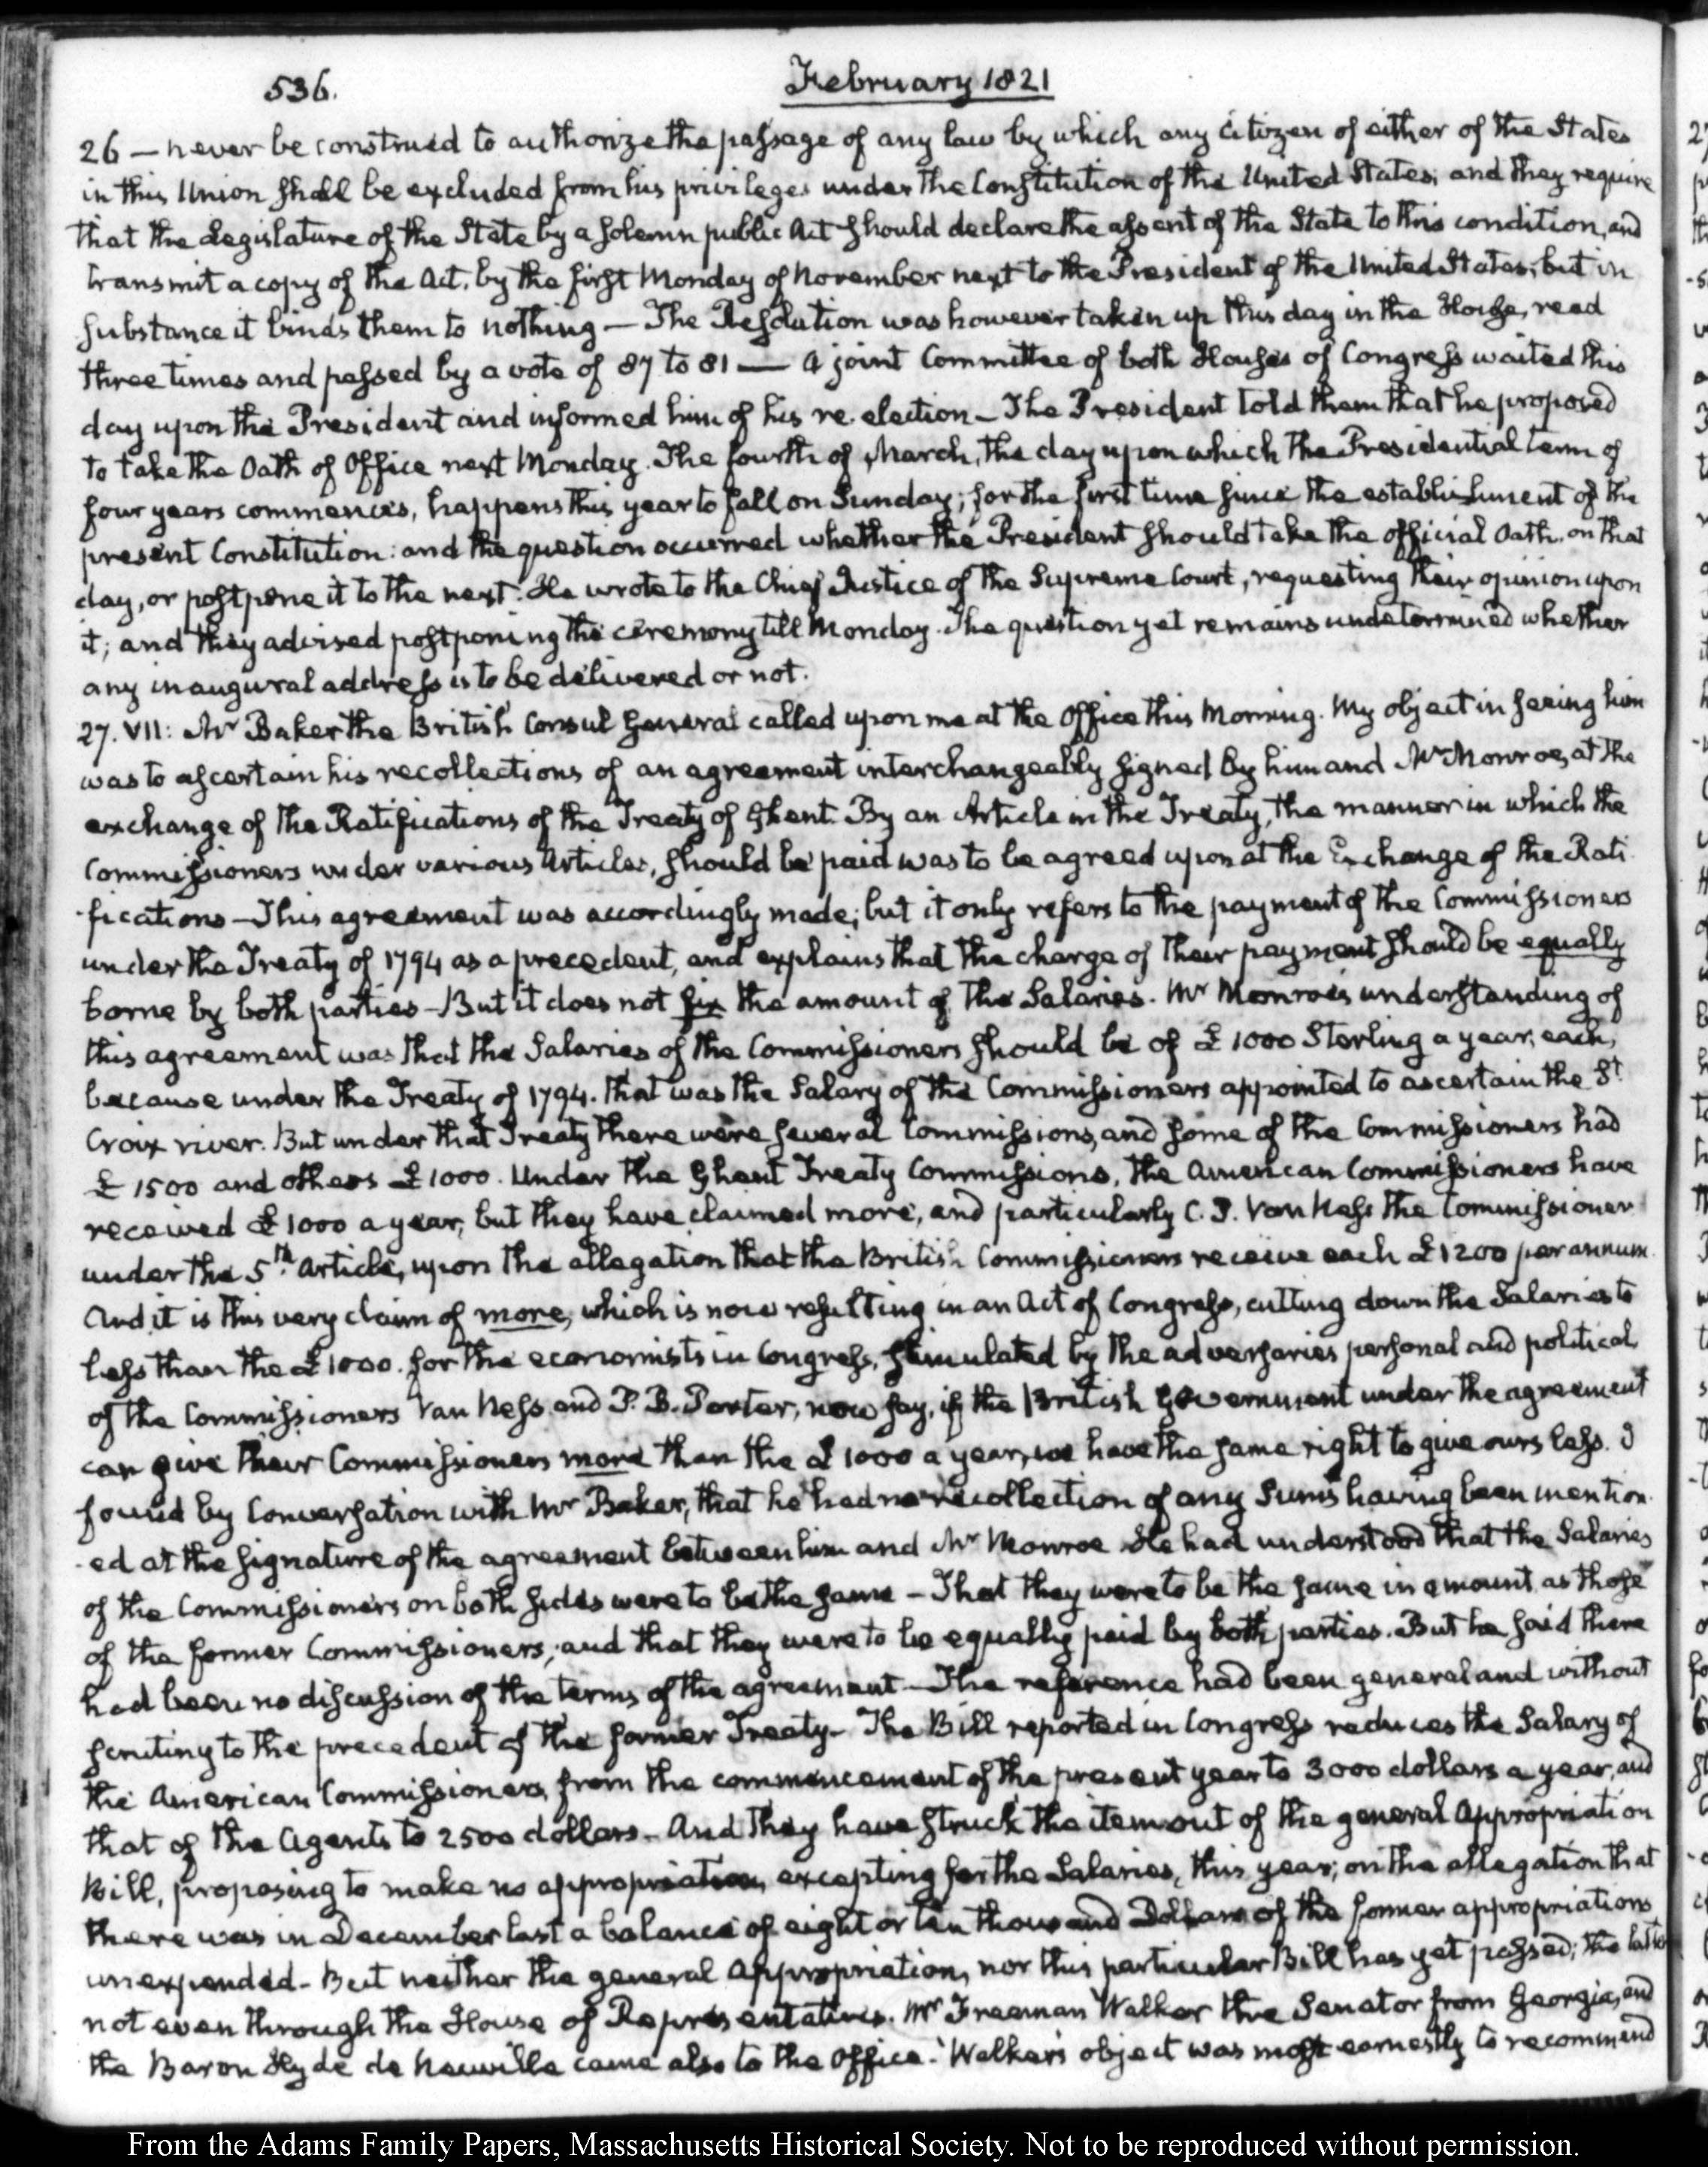 536.
February 1821
26 — never be construed to authorize the passage of any law by which any citizen of either of the States
in this Union shall be excluded from his privileges under the Constitution of the United States; and they require
that the Legislature of the State by a solemn public Act should declare the assent of the State to this condition, and
transmit a copy of the Act, by the first Monday of November next to the President of the United States; but in
substance it binds them to nothing — The Resolution was however taken up this day in the House, read
three times and passed by a vote of 87 to 81 — A joint Committee of both Houses of Congress waited this
day upon the President and informed him of his re-election — The President told them that he proposed
to take the Oath of Office next Monday. The fourth of March, the day upon which the Presidential term of
four years commences, happens this year to fall on Sunday; for the first time since the establishment of the
present Constitution: and the question occurred whether the President should take the official Oath, on that
day, or postpone it to the next. He wrote to the Chief Justice of the Supreme Court, requesting their opinion upon
it; and they advised postponing the ceremony till Monday. The question yet remains undetermined whether
any inaugural address is to be delivered or not.
27. VII: Mr Baker the British Consul General called upon me at the Office this Morning. My object in seeing him
was to ascertain his recollections of an agreement interchangeably signed by him and Mr Monroe, at the
exchange of the Ratifications of the Treaty of Ghent. By an Article in the Treaty, the manner in which the
Commissioners under various Articles, should be paid was to be agreed upon at the Exchange of the Rati
-fications — This agreement was accordingly made; but it only refers to the payment of the Commissioners
under the Treaty of 1794 as a precedent, and explains that the charge of their payment should be equally
borne by both parties — But it does not fix the amount of the Salaries. Mr Monroe's understanding of
this agreement was that the Salaries of the Commissioners should be of £1000 Sterling a year, each,
because under the Treaty of 1794. that was the Salary of the Commissioners appointed to ascertain the St
Croix river. But under that Treaty there were several Commissions, and some of the Commissioners had
£1500 and others £1000. Under the Ghent Treaty Commissions, the American Commissioners have
received £1000 a year, but they have claimed more, and particularly C. P. Van Ness the Commissioner
under the 5th Article, upon the allegation that the British Commissioners receive each £1200 per annum.
And it is this very claim of more, which is now resulting in an Act of Congress, cutting down the Salaries to
less than the £1000. for the economists in Congress, stimulated by the adversaries personal and political
of the Commissioners Van Ness and P. B. Porter, now say, if the British Government under the agreement
can give their Commissioners more than the £1000 a year, we have the same right to give ours less. I
found by Conversation with Mr Baker, that he had no recollection of any Sums having been mention
-ed at the signature of the agreement between him and Mr Monroe. He had understood that the Salaries
of the Commissioners on both sides were to be the same — That they were to be the same in amount as those
of the former Commissioners; and that they were to be equally paid by both parties. But he said there
had been no discussion of the terms of the agreement — The reference had been general and without
scrutiny to the precedent of the former Treaty — The Bill reported in Congress reduces the Salary of
the American Commissioners, from the commencement of the present year to 3000 dollars a year, and
that of the Agents to 2500 dollars — And they have struck the item out of the general Appropriation
Bill, proposing to make no appropriation, excepting for the Salaries, this year; on the allegation that
there was in December last a balance of eight or ten thousand Dollars of the former appropriations
unexpended — But neither the general Appropriation, nor this particular Bill has yet passed; the latter
not even through the House of Representatives. Mr Freeman Walker the Senator from Georgia, and
the Baron Hyde de Neuville came also to the Office. Walker's object was most earnestly to recommend
From the Adams Family Papers, Massachusetts Historical Society. Not to be reproduced without permission.